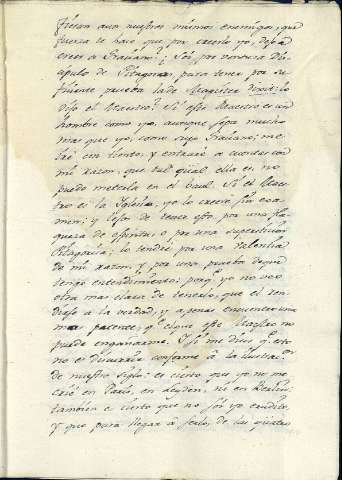 fiesan aun nuestros mismos enemigos, que
fuerza le hace que por creerlo yo, deje de
creer a
Soi, por ventura Dis-
cipulo de Pitagoras, para tener por su-
ficiente prueba la de Magister dixit: lo
dijo el Maestro? Si este Maestro es un
hombre como yo, aunque sepa mucho
mas que yo, como suyo me
iré con tiento, y entraré a cuentas con
mi razon, que tal qüal ella es, no
puedo meterla en el Baul. Si el Maes-
tro es la Iglesia, yo lo creeré sin exa-
men; y lejos de tener esto por una fla-
queza de espiritu, o por una supersticion
Pitagorica, lo tendré por una valentia
de mi razon, y por una prueba de que
tengo entendimiento; porq.e yo no veo
otra mas clara de tenerlo, que el ren-
dirse a la verdad, y apenas encuentro una
mas patente, q.e el que este Maestro no
puede engañarme. Si me dices q.e esto
no es discurrir conforme à la ilustac.on
de nuestro siglo: es cierto que yo ni me
crié en Paris, en Leyden, ni en Berlin:
tambien es cierto que no soi yo erudito,
y que para llegar à serlo, de las